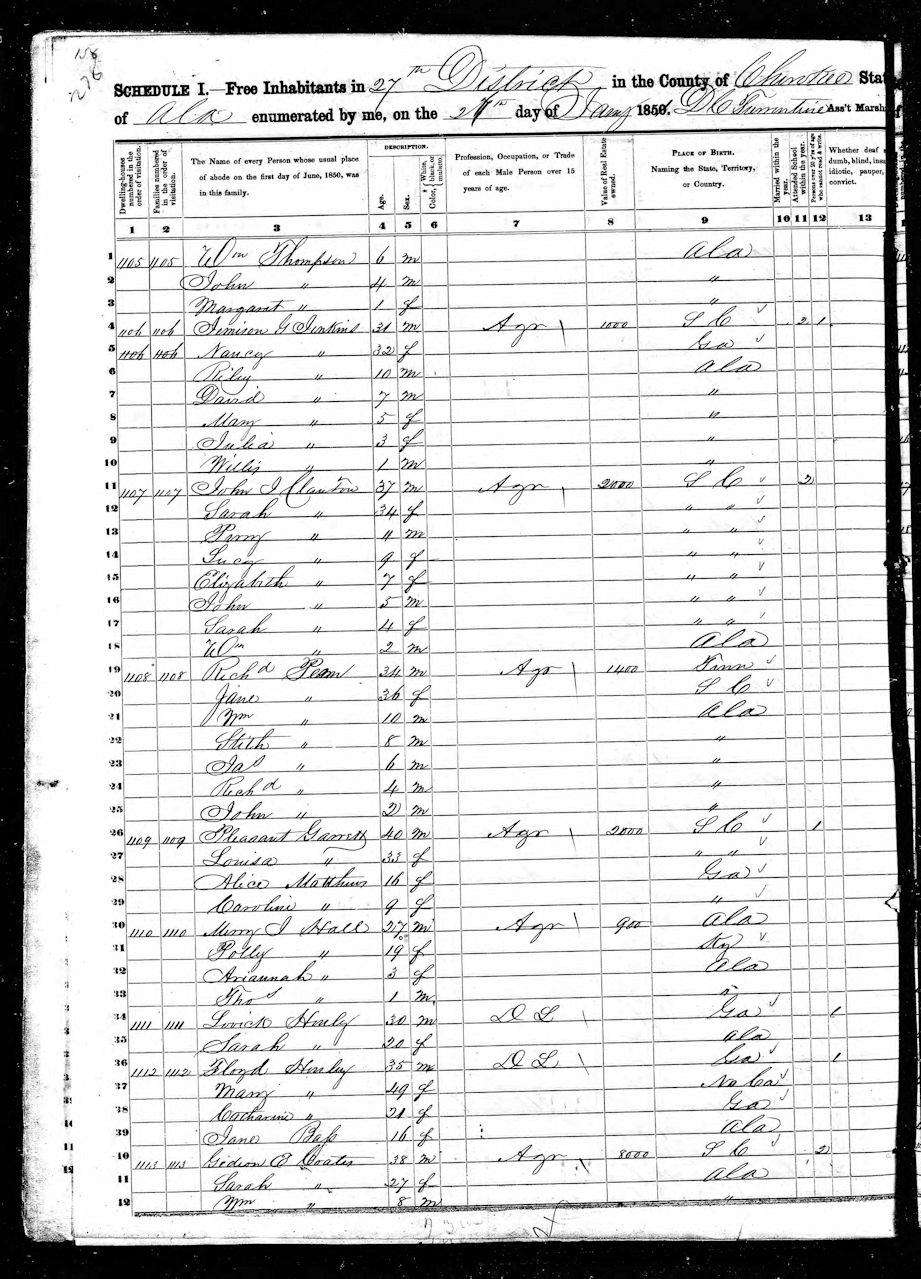 156
276
SCHEDULE I.—Free Inhabitants in 27th District in the County of State
of Ala enumerated by me, on the day of Jany 1850. Ass't Marsh
Dwelling-houses numbered in the order of visitation.
Families numbered in the order of visitation.
The Name of every Person whose usual place of abode on the first day of June, 1850, was in this family.
DESCRIPTION.
Age.
Sex.
Color, { White, black, or mulatto.
Profession, Occupation, or Trade of each Male Person over 15 years of age.
Value of Real Estate owned.
PLACE OF BIRTH. Naming the State, Territory, or Country.
Married within the year.
Attended School within the year.
Persons over 20 y'rs of age who cannot read & write.
Whether deaf dumb, blind, ins idiotic, pauper, convict.
1 2 3 4 5 6 7 8 9 10 11 12 13
1 1105 1105 Wm Thompson 6 m Ala
2 John " 4 m "
3 Margaret " 1 f "
4 1106 1106 Jimison G Jinkins 31 m Agr 1000 S C 2 1
5 1106 1106 Nancy " 32 f Ga
6 Riley " 10 m Ala
7 David " 7 m "
8 Mary " 5 f "
9 Julia " 3 f "
10 Willis " 1 m "
11 1107 1107 John J Clanton 37 m Agr 2000 S C 2
12 Sarah " 34 f " "
13 Perry " 11 m " "
14 Lucy " 9 f " "
15 Elizabeth " 7 f " "
16 John " 5 m " "
17 Sarah " 4 f " "
18 Wm " 2 m Ala
19 1108 1108 Richd 34 m Agr 1400 Tenn
20 Jane " 36 f S C
21 Wm " 10 m Ala
22 Stith " 8 m "
23 Jas " 6 m "
24 Richd " 4 m "
25 John " 2 m "
26 1109 1109 Pleasant Garrett 40 m Agr 2000 S C 1
27 Louisa " 33 f " "
28 Alice Matthews 16 f Ga
29 Caroline " 9 f "
30 1110 1110 Merry J Hall 27 m Agr 900 Ala
31 Polly " 19 f Ky
32 Ariannah " 3 f Ala
33 Thos " 1 m "
34 1111 1111 Lovick Henly 30 m D L Ga 1
35 Sarah " 20 f Ala
36 1112 1112 Floyd Henley 35 m D L Ga 1
37 Mary " 49 f No Ca
38 Catharine " 21 f Ga
39 Jane Bass 16 f Ala
10 1113 1113 Gideon E Coates 38 m Agr 8000 S C 2
11 Sarah " 27 f Ala
12 Wm " 8 m "